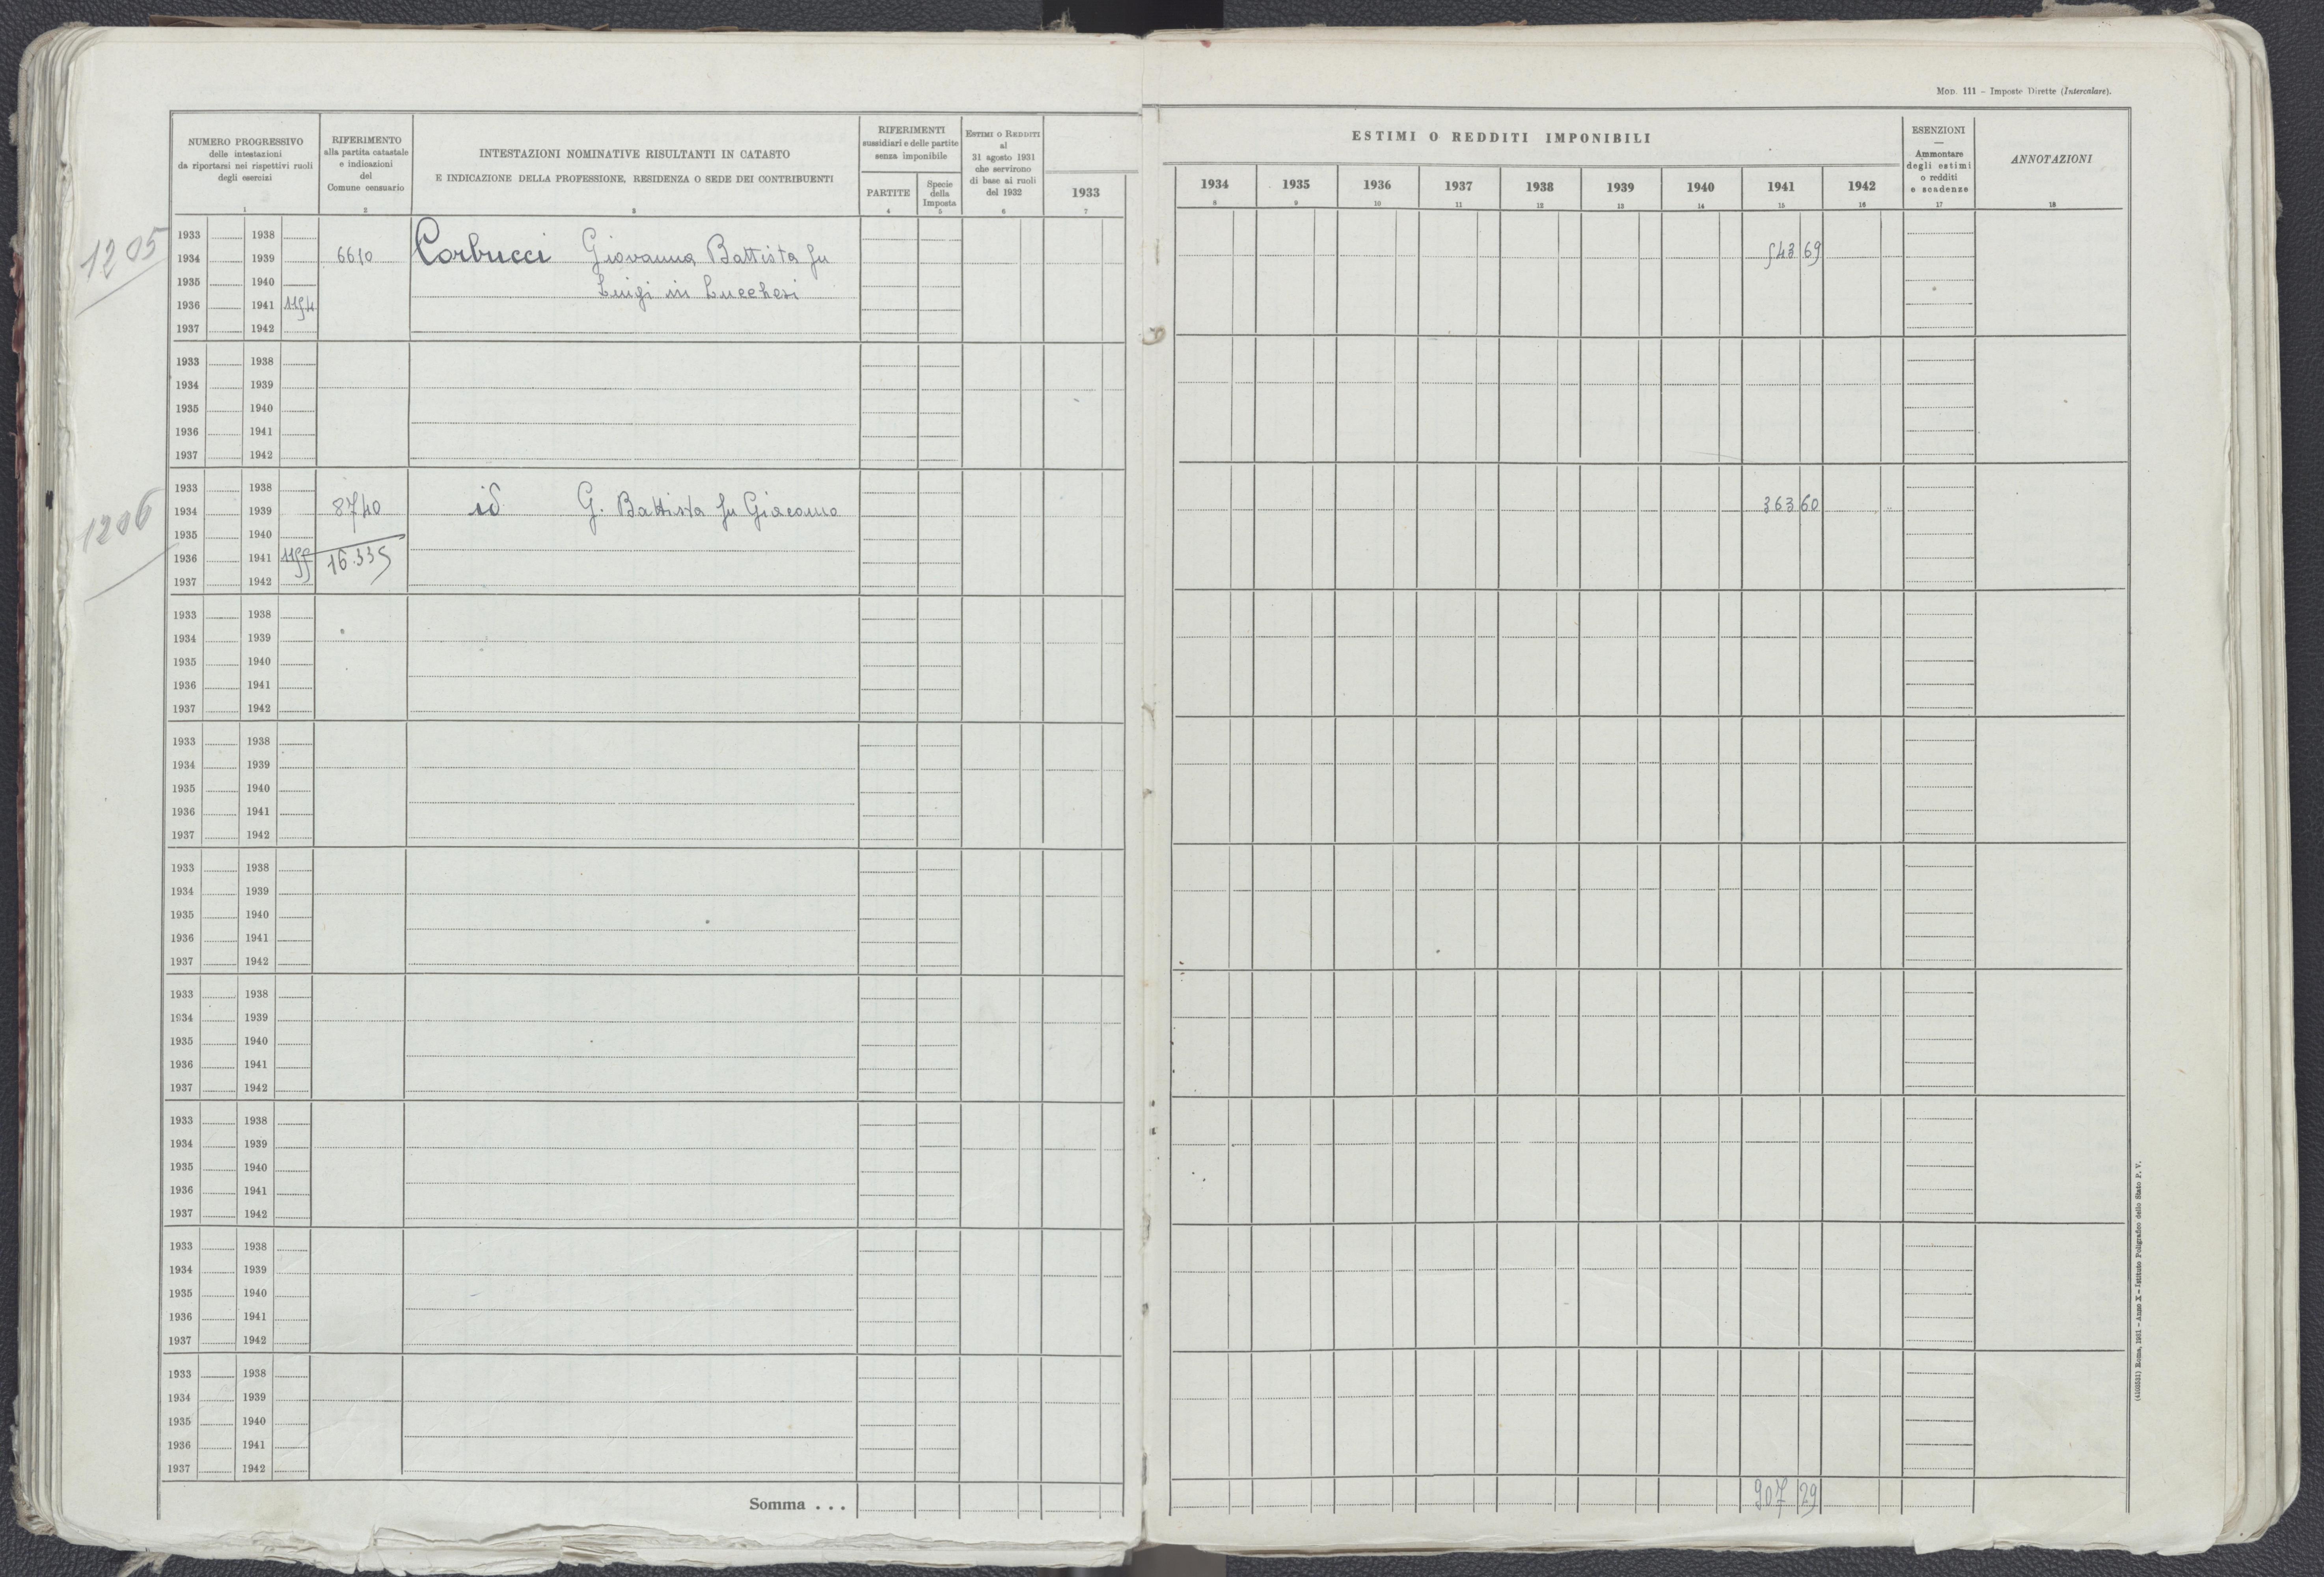 MOD. 111 – Imposte Dirette (Intercalare).
NUMERO PROGRESSIVO
delle intestazioni
da riportarsi nei rispettivi ruoli
degli esercizi
1
RIFERIMENTO
alla partita catastale
e indicazioni
del
Comune censuario
2
INTESTAZIONI NOMINATIVE RISULTANTI IN CATASTO
E INDICAZIONE DELLA PROFESSIONE, RESIDENZA O SEDE DEI CONTRIBUENTI
3
RIFERIMENTI
sussidiari e delle partite
senza imponibile
PARTITE
4
Specie
della
Imposta
5
ESTIMI O REDDITI
al
31 agosto 1931
che servirono
di base ai ruoli
del 1932
6
1933
7
ESTIMI O REDDITI IMPONIBILI
1934 1935 1936 1937 1938 1939 1940 1941 1942
8 9 10 11 12 13 14 15 16
ESENZIONI
—
Ammontare
degli estimi
o redditi
e scadenze
17
ANNOTAZIONI
18
1205
1933 1938
1934 1939 6610 Corbucci Giovanna Battista fu 543 69
1935 1940 Luigi in Lucchesi
1936 1941 1154
1937 1942
1933 1938
1934 1939
1935 1940
1936 1941
1937 1942
1206
1933 1938
1934 1939 8740 id G. Battista fu Giacomo 363 60
1935 1940
1936 1941 1155 16.335
1937 1942
1933 1938
1934 1939
1935 1940
1936 1941
1937 1942
1933 1938
1934 1939
1935 1940
1936 1941
1937 1942
1933 1938
1934 1939
1935 1940
1936 1941
1937 1942
1933 1938
1934 1939
1935 1940
1936 1941
1937 1942
1933 1938
1934 1939
1935 1940
1936 1941
1937 1942
1933 1938
1934 1939
1935 1940
1936 1941
1937 1942
1933 1938
1934 1939
1935 1940
1936 1941
1937 1942
Somma . . . 907 29
(4103531) Roma, 1931 – Anno X – Istituto Poligrafico dello Stato P. V.